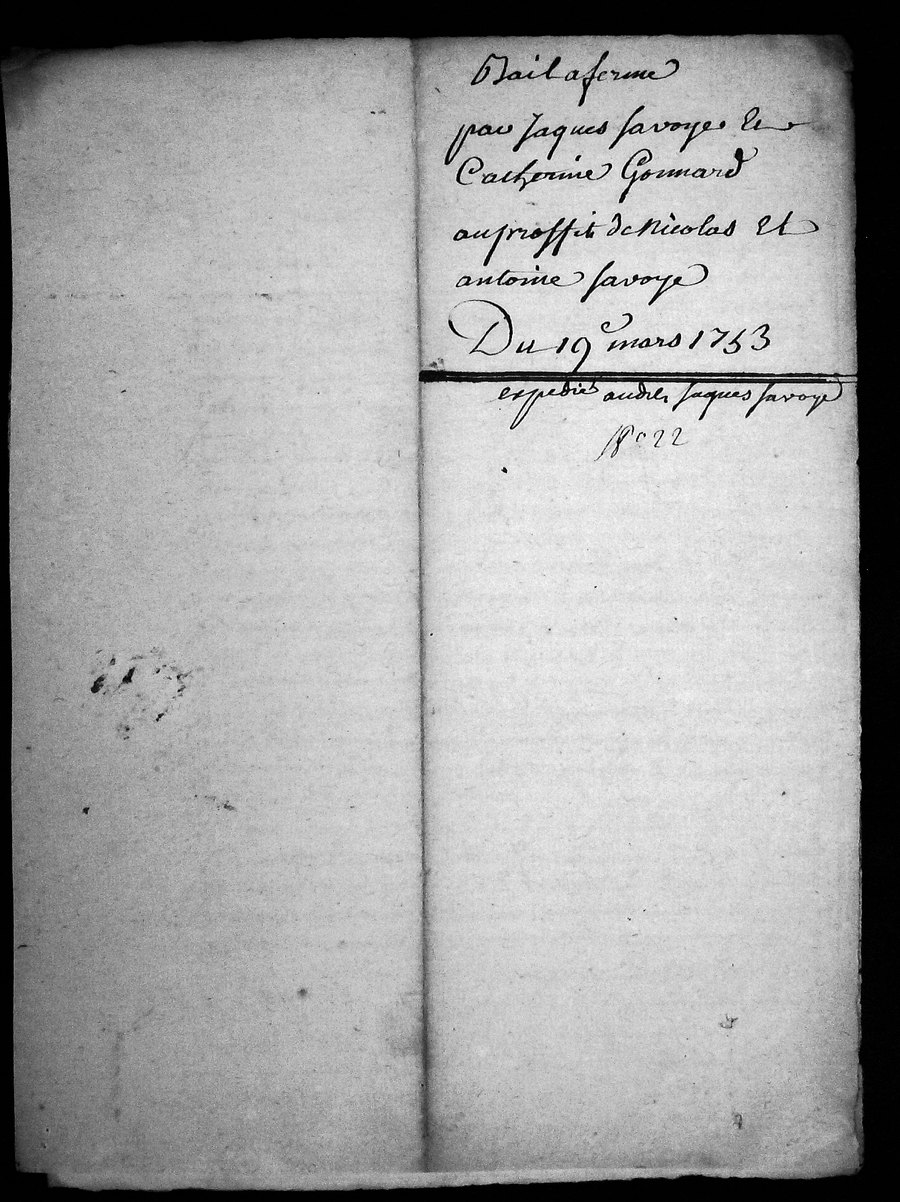 Bail a ferme
par Jaques Savoye Et
Catherine Gonnard
au proffit de Nicolas Et
antoine Savoye
Du 19e mars 1753
expedié audit Jaques Savoye
22